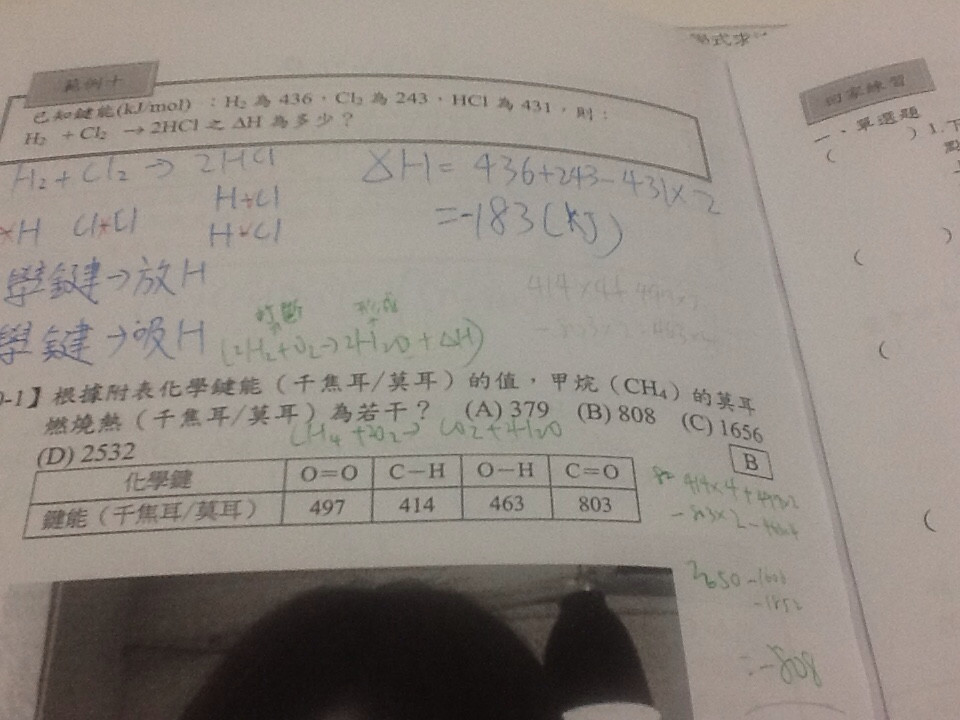 範例十
已知鍵能(kJ/mol)：H₂ 為 436，Cl₂ 為 243，HCl 為 431，則：
H₂ + Cl₂ → 2HCl 之 ΔH 為多少？
H₂ + Cl₂ → 2HCl
ΔH = 436+243-431×2
H+Cl
×H Cl×Cl
H×Cl
=-183(kJ)
學鍵→放H
學鍵→吸H
打斷 形成
(2H₂+O₂→2H₂O+ΔH)
0-1】根據附表化學鍵能（千焦耳/莫耳）的值，甲烷（CH₄）的莫耳
燃燒熱（千焦耳/莫耳）為若干？ (A) 379 (B) 808 (C) 1656
(D) 2532
B
化學鍵 O=O C－H O－H C=O
鍵能（千焦耳/莫耳） 497 414 463 803
414×4+497×2
2650-1606
-1852
=-808
回家練習
一、單選題
( ) 1. 下
( )
(
(